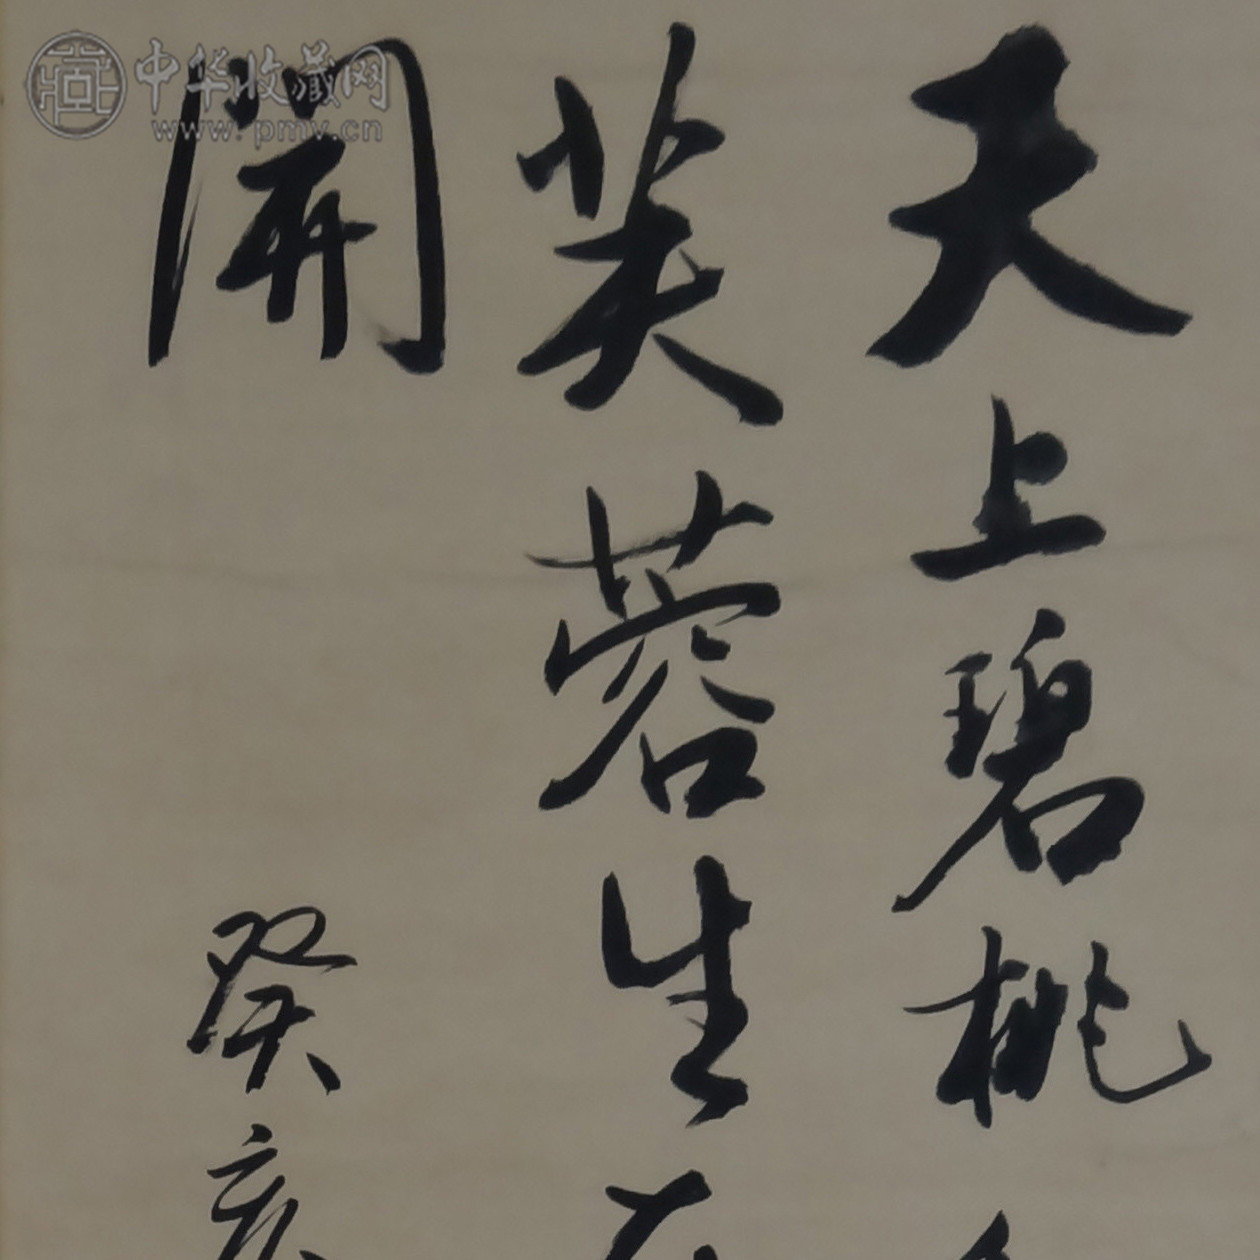 天上碧桃
芙蓉生在
開
癸亥
中华收藏网
www.pmv.cn